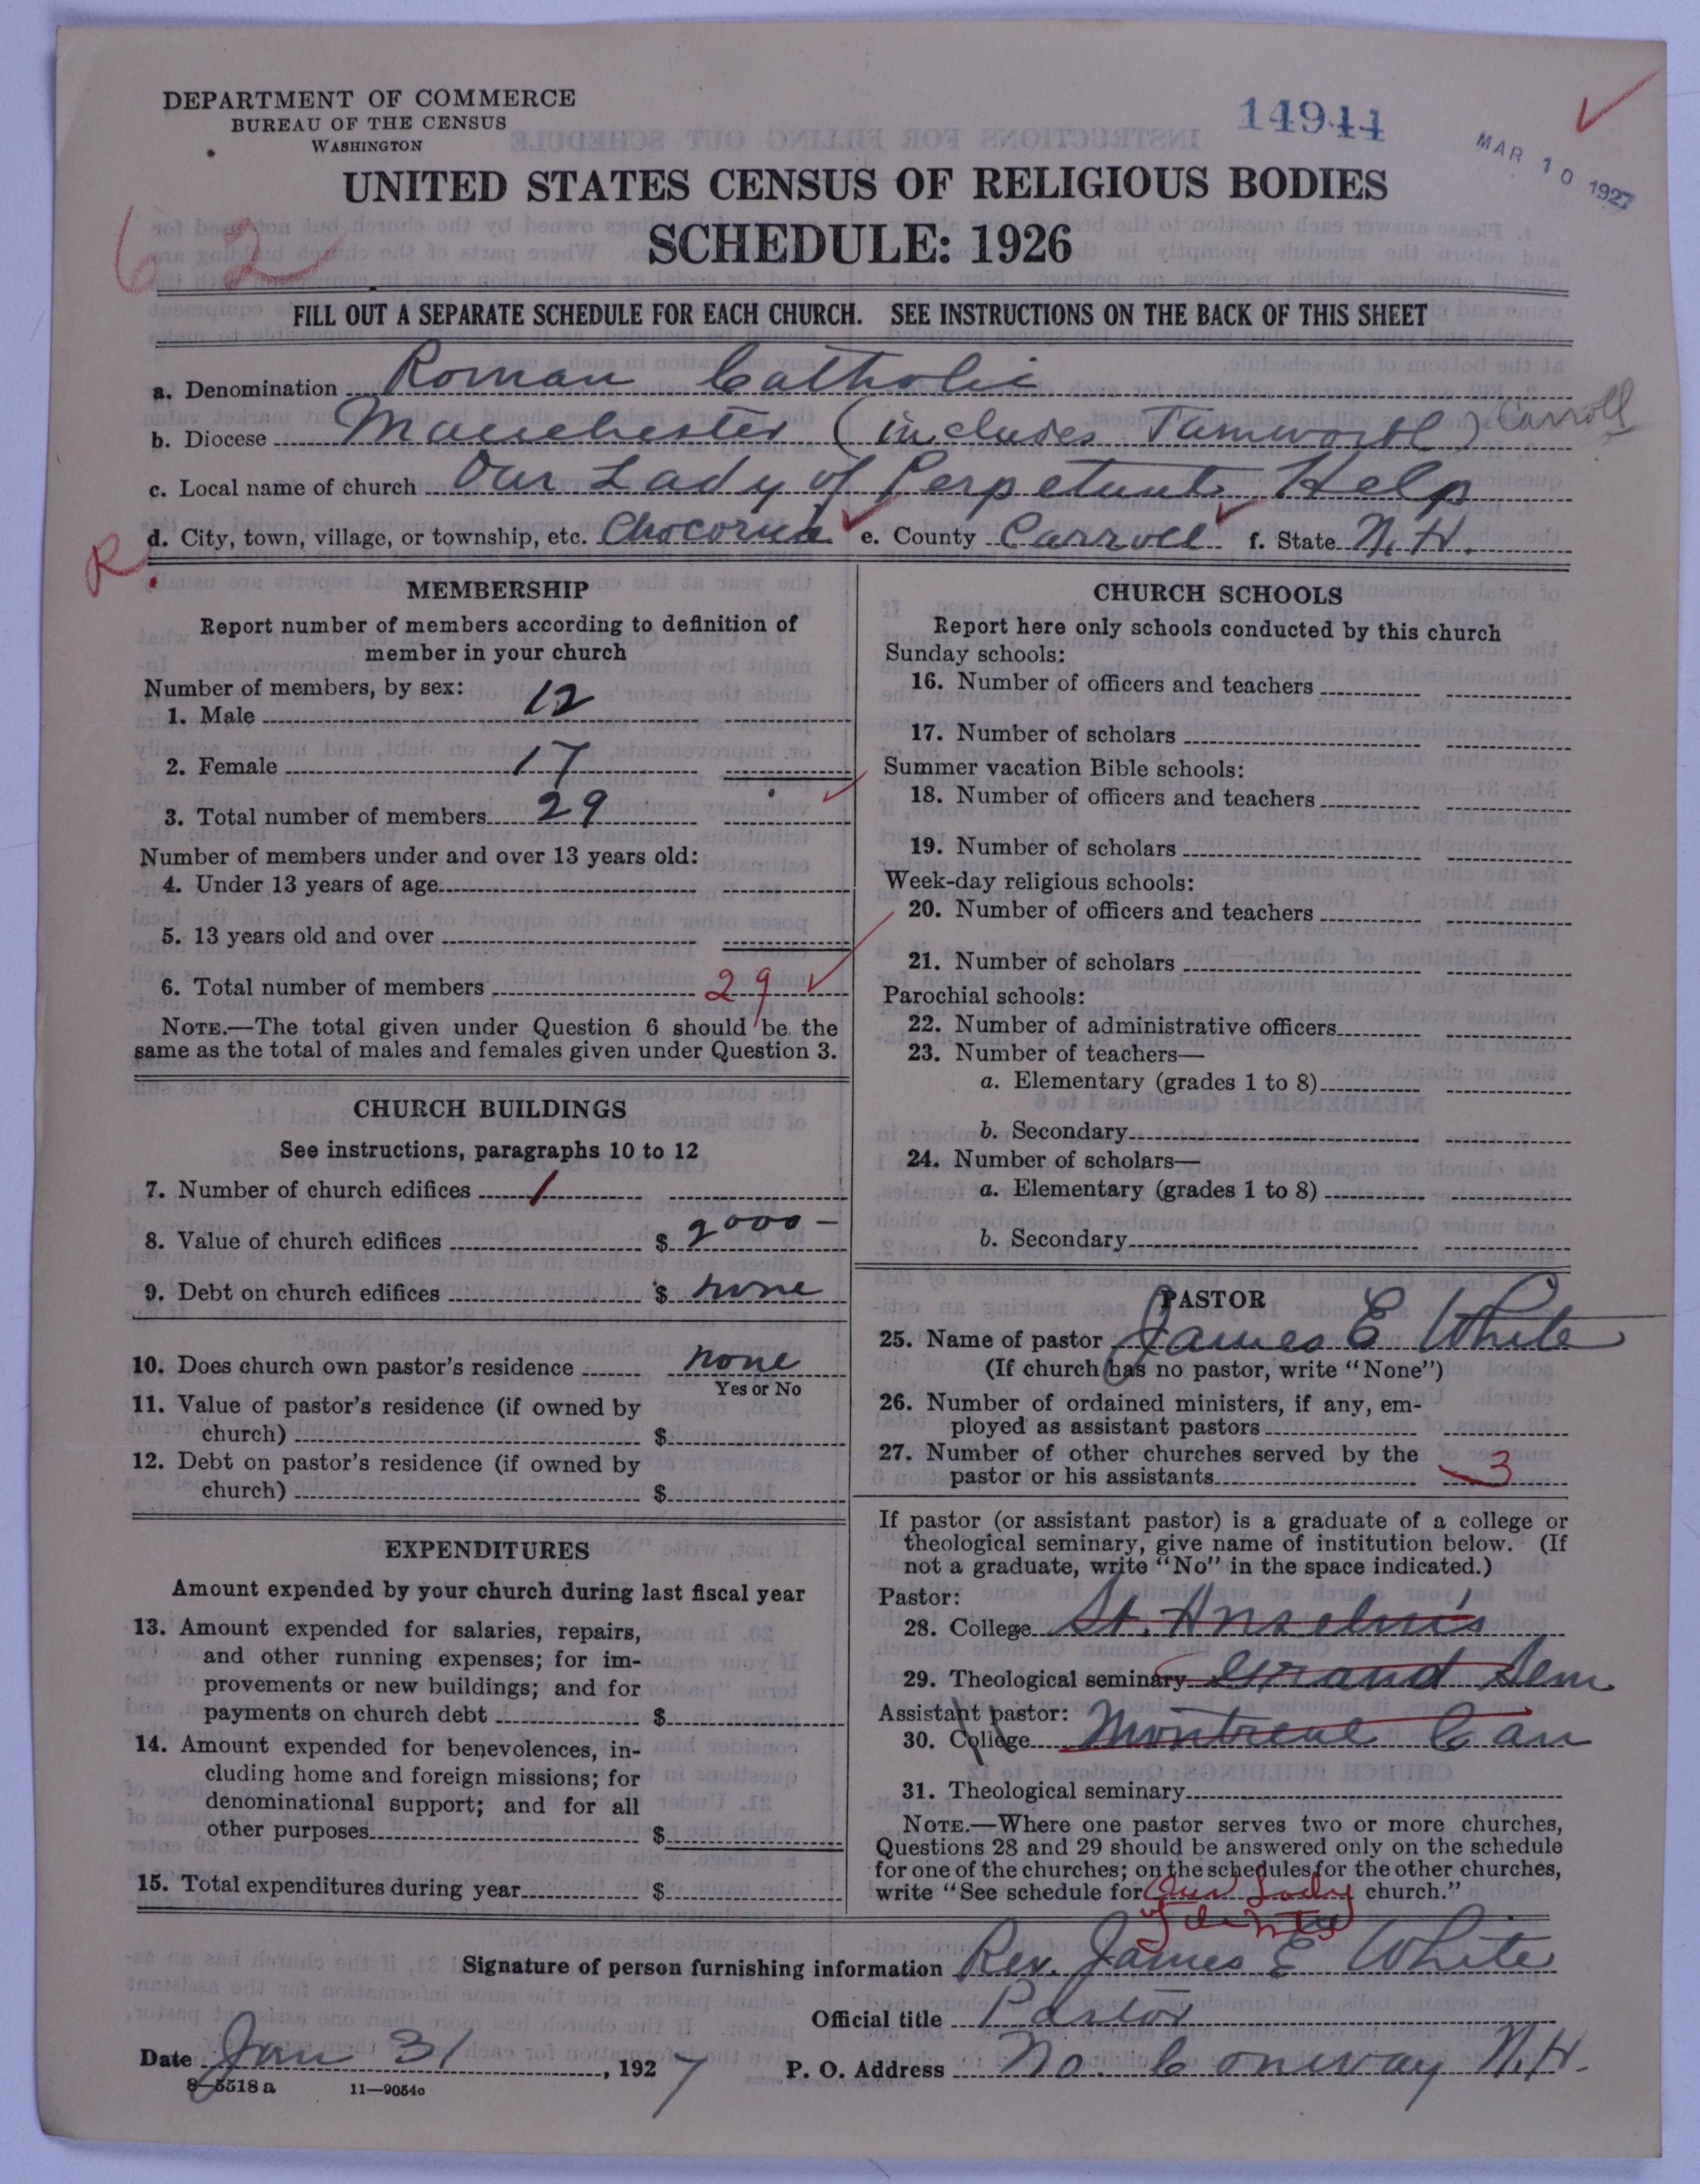 DEPARTMENT OF COMMERCE
BUREAU OF THE CENSUS
WASHINGTON
14944
MAR 10 1927
UNITED STATES CENSUS OF RELIGIOUS BODIES
SCHEDULE: 1926
62
FILL OUT A SEPARATE SCHEDULE FOR EACH CHURCH. SEE INSTRUCTIONS ON THE BACK OF THIS SHEET
a. Denomination Roman Catholic
b. Diocese Manchester (includes Tamworth) Carroll
c. Local name of church Our Lady of Perpetual Help
R d. City, town, village, or township, etc. Chocorua e. County Carroll f. State N.H.
MEMBERSHIP
Report number of members according to definition of
member in your church
Number of members, by sex:
1. Male 12
2. Female 17
3. Total number of members 29
Number of members under and over 13 years old:
4. Under 13 years of age
5. 13 years old and over
6. Total number of members 29
NOTE.—The total given under Question 6 should be the
same as the total of males and females given under Question 3.
CHURCH BUILDINGS
See instructions, paragraphs 10 to 12
7. Number of church edifices 1
8. Value of church edifices $ 2000–
9. Debt on church edifices $ none
10. Does church own pastor's residence none
Yes or No
11. Value of pastor's residence (if owned by
church) $
12. Debt on pastor's residence (if owned by
church) $
EXPENDITURES
Amount expended by your church during last fiscal year
13. Amount expended for salaries, repairs,
and other running expenses; for im-
provements or new buildings; and for
payments on church debt $
14. Amount expended for benevolences, in-
cluding home and foreign missions; for
denominational support; and for all
other purposes $
15. Total expenditures during year $
CHURCH SCHOOLS
Report here only schools conducted by this church
Sunday schools:
16. Number of officers and teachers
17. Number of scholars
Summer vacation Bible schools:
18. Number of officers and teachers
19. Number of scholars
Week-day religious schools:
20. Number of officers and teachers
21. Number of scholars
Parochial schools:
22. Number of administrative officers
23. Number of teachers—
a. Elementary (grades 1 to 8)
b. Secondary
24. Number of scholars—
a. Elementary (grades 1 to 8)
b. Secondary
PASTOR
25. Name of pastor James E White
(If church has no pastor, write "None")
26. Number of ordained ministers, if any, em-
ployed as assistant pastors
27. Number of other churches served by the
pastor or his assistants 3
If pastor (or assistant pastor) is a graduate of a college or
theological seminary, give name of institution below. (If
not a graduate, write "No" in the space indicated.)
Pastor:
28. College St. Anselm's
29. Theological seminary Grand Sem
Assistant pastor:
30. College Montreal Can
31. Theological seminary
NOTE.—Where one pastor serves two or more churches,
Questions 28 and 29 should be answered only on the schedule
for one of the churches; on the schedules for the other churches,
write "See schedule for Our Lady church."
of
Signature of person furnishing information Rev. James E White
Official title Pastor
Date Jan 31, 1927 P. O. Address No. Conway N.H.
8—5518 a 11—9054c